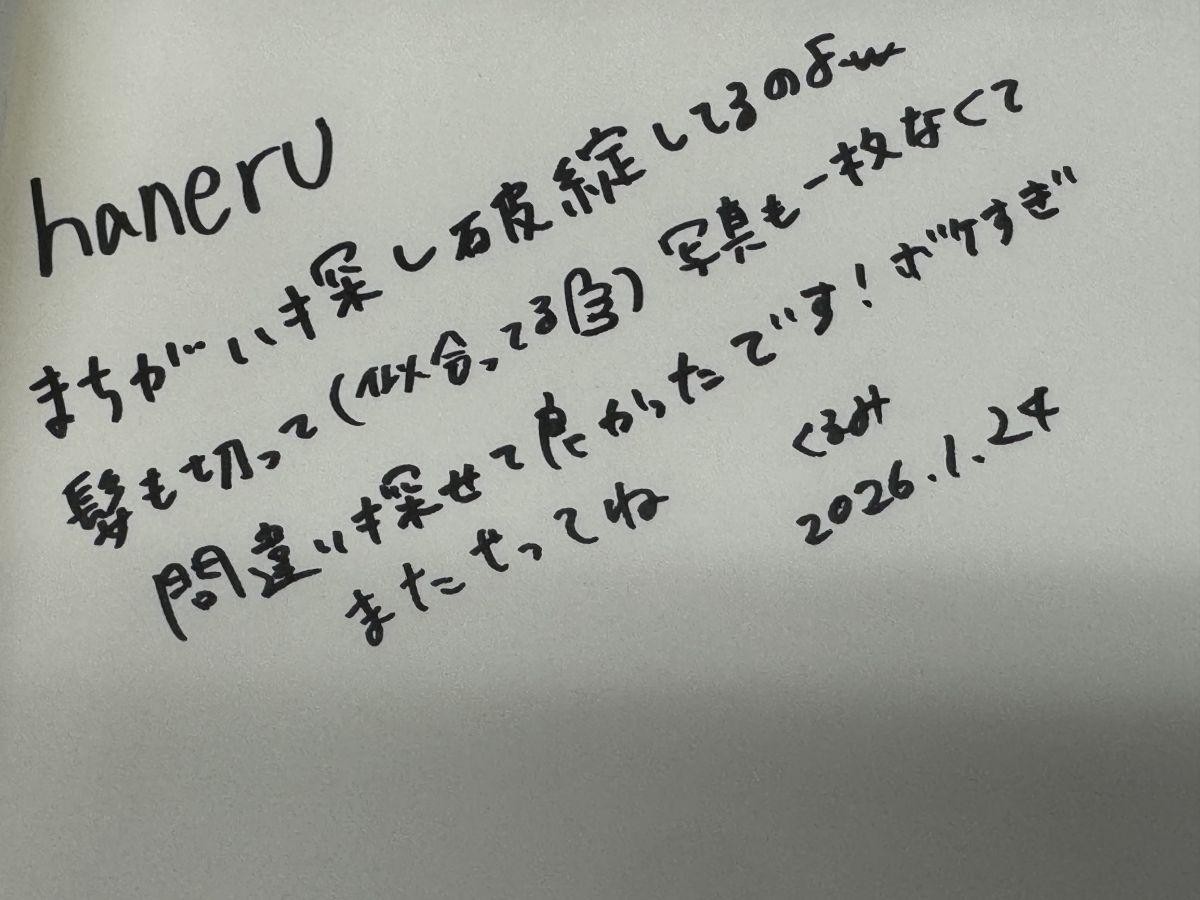 haneru
まちがい探し破綻してるのよw
髪も切って(似合ってる(笑) 写真も一枚なくて
間違い探せて良かったです!ボケすぎ
またやってね
くるみ
2026.1.24